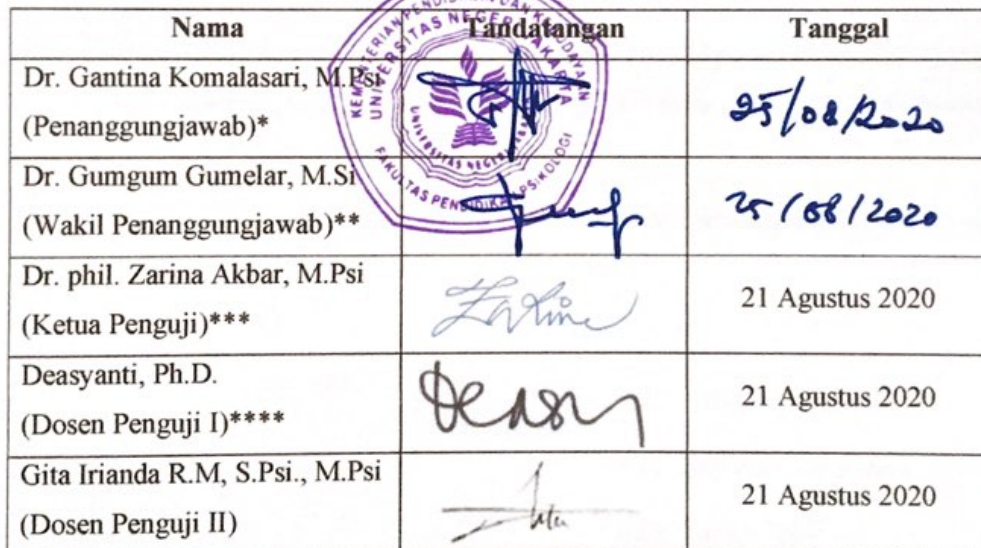 Nama Tandatangan Tanggal
Dr. Gantina Komalasari, M.Psi
(Penanggungjawab)*
25/08/2020
Dr. Gumgum Gumelar, M.Si
(Wakil Penanggungjawab)**
25/08/2020
Dr. phil. Zarina Akbar, M.Psi
(Ketua Penguji)***
Zarina
21 Agustus 2020
Deasyanti, Ph.D.
(Dosen Penguji I)****
Deasy
21 Agustus 2020
Gita Irianda R.M, S.Psi., M.Psi
(Dosen Penguji II)
21 Agustus 2020
KEMENTERIAN PENDIDIKAN DAN KEBUDAYAAN
UNIVERSITAS NEGERI JAKARTA
UNIVERSITAS NEGERI
FAKULTAS PENDIDIKAN PSIKOLOGI